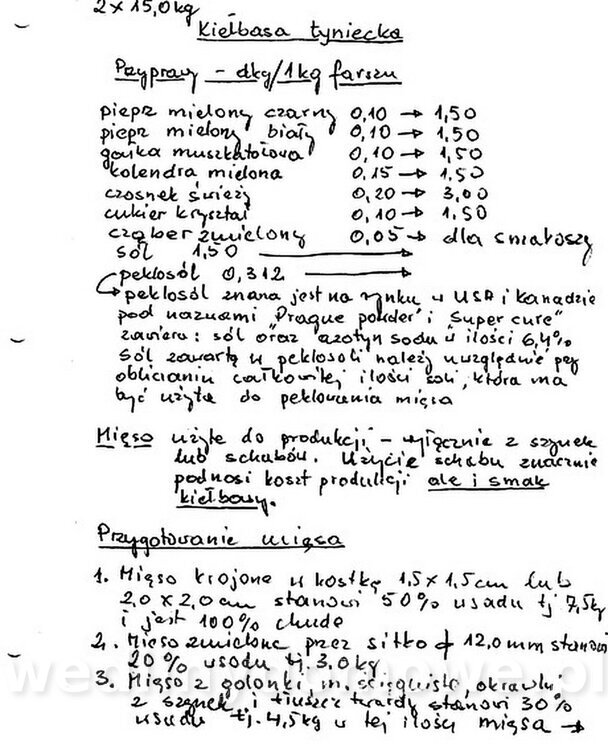 2 x 15,0 kg
Kiełbasa tyniecka
Przyprawy - dkg/1kg farszu
pieprz mielony czarny 0,10 → 1,50
pieprz mielony biały 0,10 → 1,50
gałka muszkatołowa 0,10 → 1,50
kolendra mielona 0,15 → 1,50
czosnek świeży 0,20 → 3,00
cukier kryształ 0,10 → 1.50
cząber zmielony 0,05 → dla smakoszy
sól 1,50 →
peklosól 0,312 →
peklosól znana jest na rynku w USA i Kanadzie
pod nazwami "Prague powder" i "Super cure"
zawiera: sól oraz azotyn sodu w ilości 6,4%
Sól zawartą w peklosoli należy uwzględnić przy
obliczaniu całkowitej ilości soli, która ma
być użyta do peklowania mięsa
Mięso użyte do produkcji - wyłącznie z szynek
lub schabów. Użycie schabu znacznie
podnosi koszt produkcji ale i smak
kiełbasy.
Przygotowanie mięsa
1. Mięso krojone w kostkę 1,5 x 1,5 cm lub
2,0 x 2,0 cm stanowi 50% wsadu tj 7,5kg
i jest 100% chude
2. Mięso zmielone przez sitko ϕ 12,0 mm stanowi
20% wsadu tj. 3,0 kg
3. Mięso z golonki, m. ścięgniste, okrawki
z szynek i tłuszcz twardy stanowi 30%
wsadu tj. 4,5 kg w tej ilości mięsa →